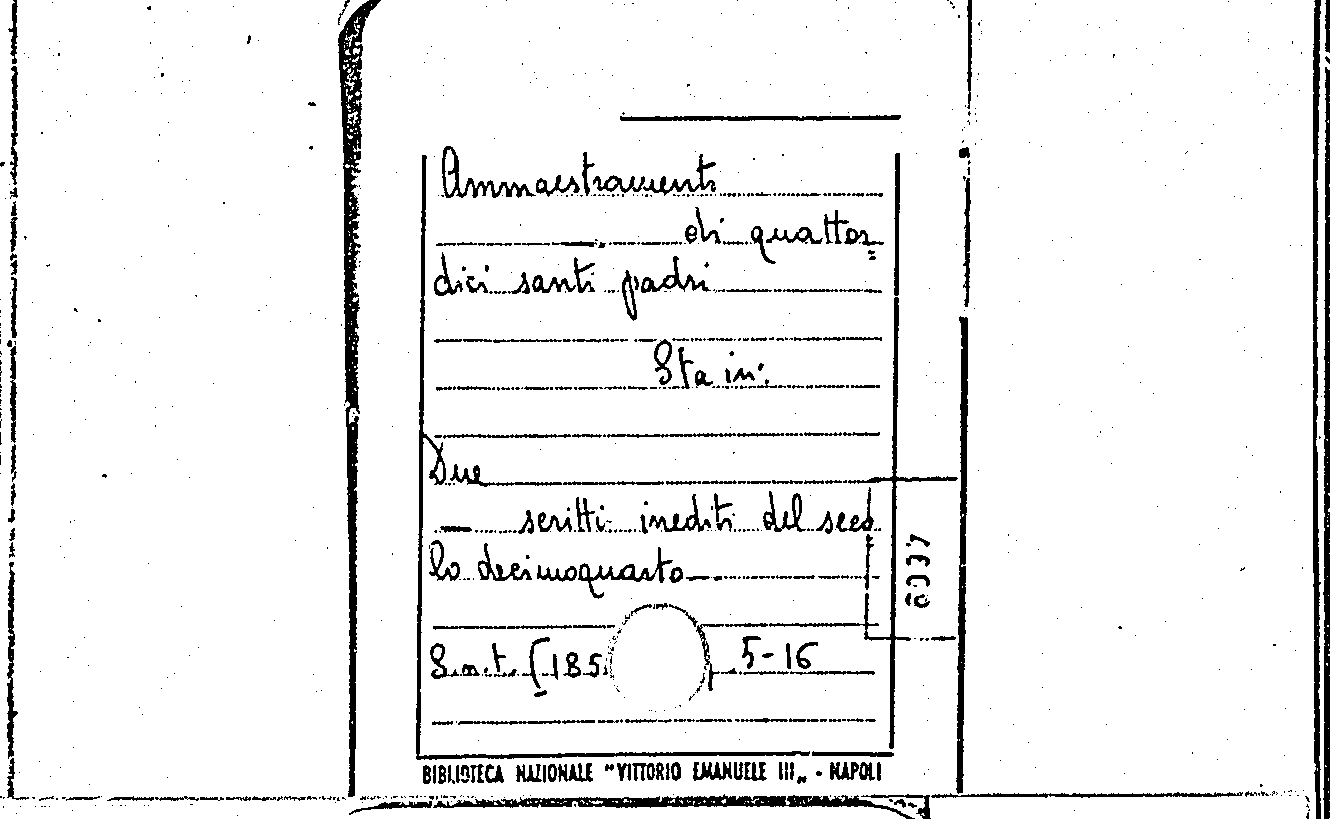 Ammaestramenti
di quattor=
dici santi padri
Sta in:
Due
— scritti inediti del seco=
lo decimoquarto —
S.n.t. [185 5-16
BIBLIOTECA NAZIONALE "VITTORIO EMANUELE III„ - NAPOLI